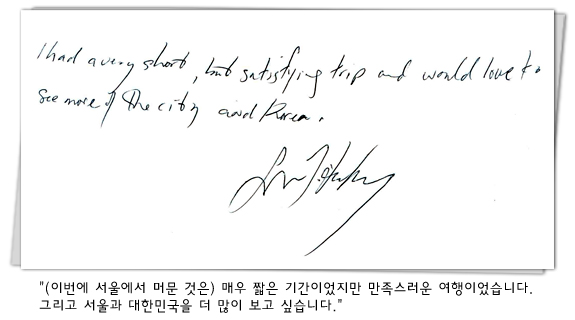 I had a very short, but satisfying trip and would love to
see more of the city and Korea.
"(이번에 서울에서 머문 것은) 매우 짧은 기간이었지만 만족스러운 여행이었습니다.
그리고 서울과 대한민국을 더 많이 보고 싶습니다."